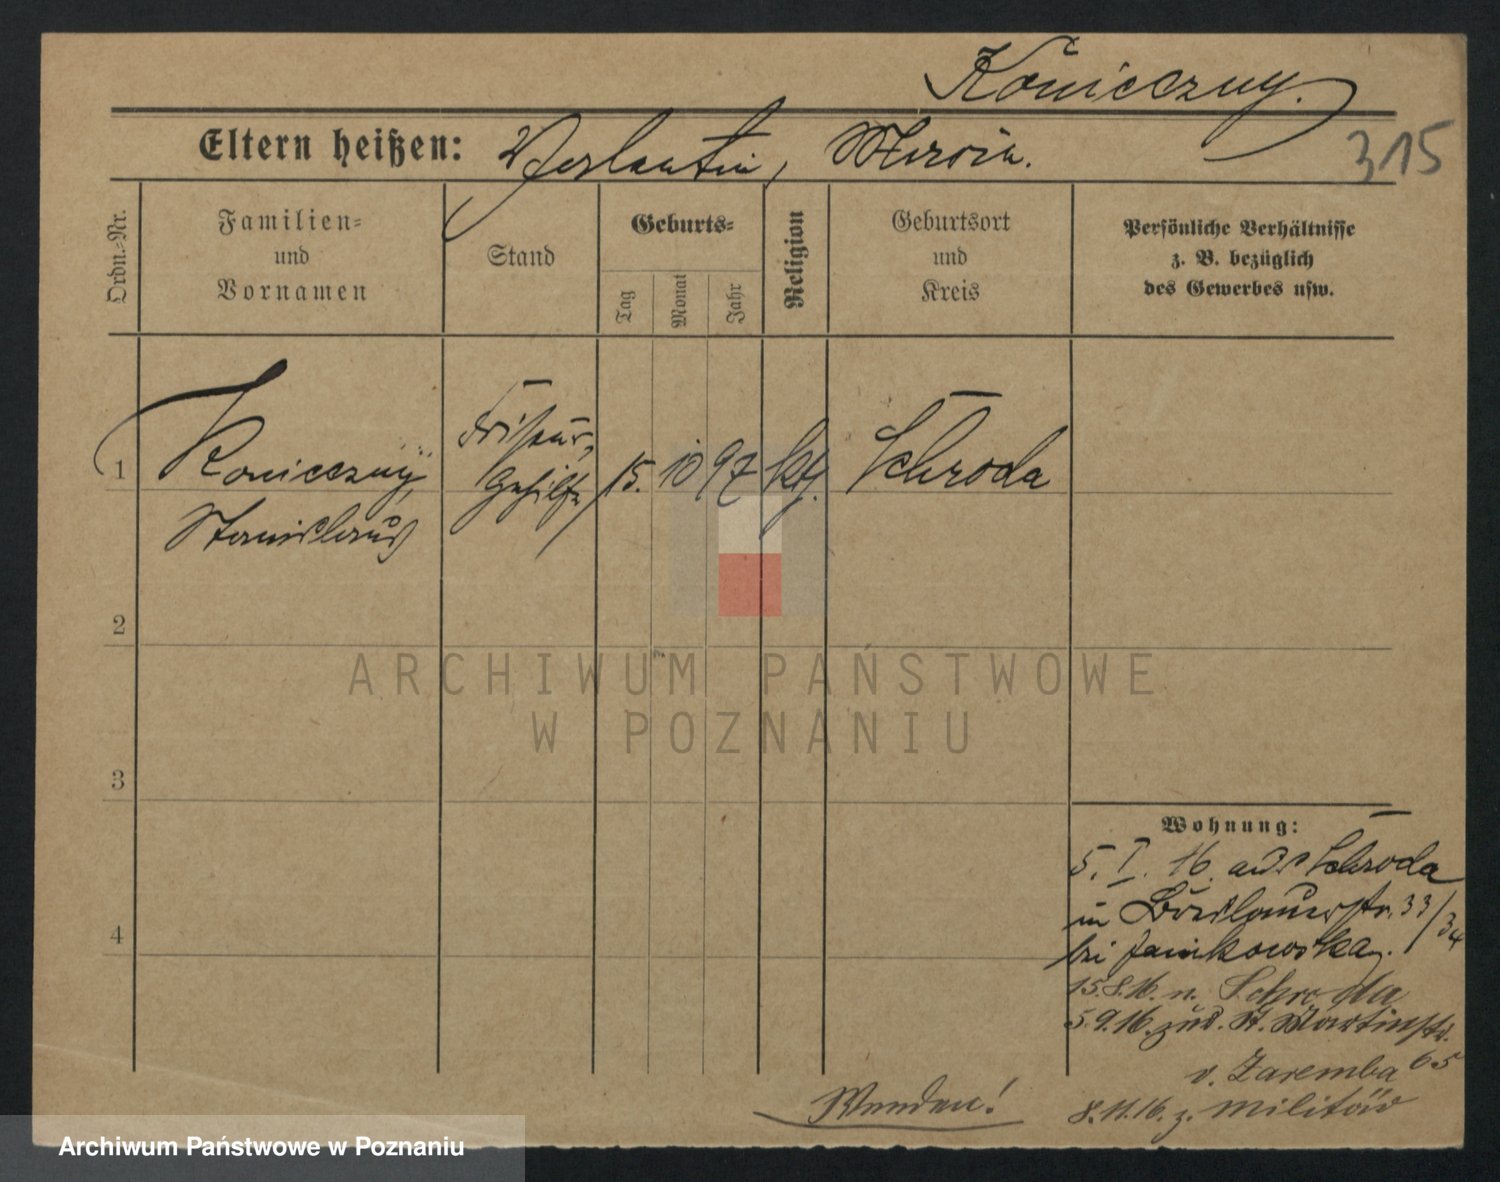 Konieczny.
Eltern heißen: Valentin, Maria.
315
Ordn.-Nr.
Familien-
und
Vornamen
Stand
Geburts-
Tag
Monat
Jahr
Religion
Geburtsort
und
Kreis
Persönliche Verhältnisse
z. B. bezüglich
des Gewerbes usw.
1
Konieczny,
Stanislaus
Friseur-
gehilfe
15. 10 97 kth. Schroda
2
3
4
ARCHIWUM PAŃSTWOWE
W POZNANIU
Wohnung:
5. I. 16. aus Schroda
in Breslauerstr. 33/34
bei Jankowska.
15.8.16. n. Schroda
5.9.16. zur. St. Martinstr.
65
v. Zaremba
8.11.16. z. Militär
Wenden!
Archiwum Państwowe w Poznaniu